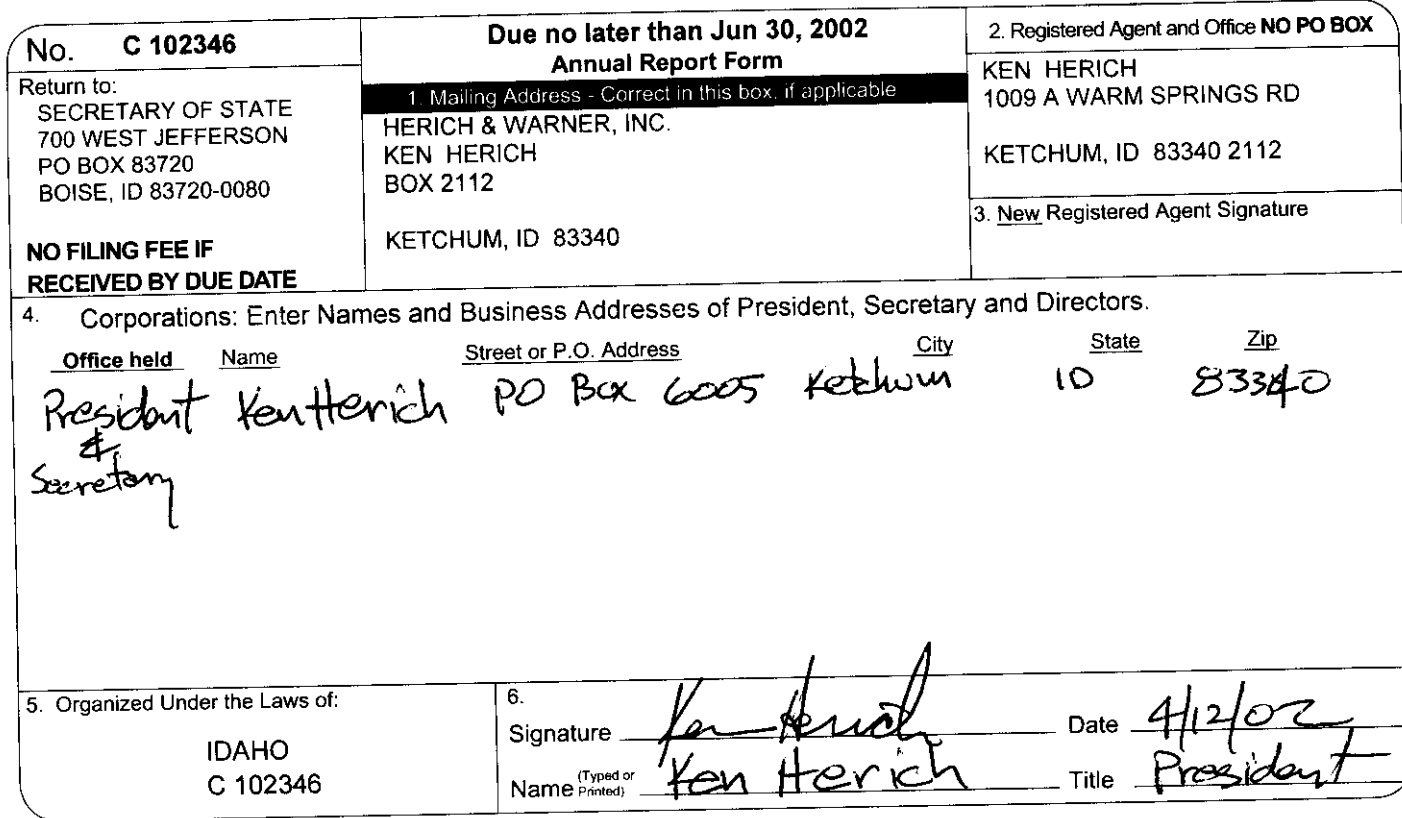 No. C 102346
Return to:
SECRETARY OF STATE
700 WEST JEFFERSON
PO BOX 83720
BOISE, ID 83720-0080
NO FILING FEE IF
RECEIVED BY DUE DATE
Due no later than Jun 30, 2002
Annual Report Form
1. Mailing Address - Correct in this box, if applicable
HERICH & WARNER, INC.
KEN HERICH
BOX 2112
KETCHUM, ID 83340
2. Registered Agent and Office NO PO BOX
KEN HERICH
1009 A WARM SPRINGS RD
KETCHUM, ID 83340 2112
3. New Registered Agent Signature
4. Corporations: Enter Names and Business Addresses of President, Secretary and Directors.
Office held Name Street or P.O. Address City State Zip
President Ken Herich PO Box 6005 Ketchum ID 83340
&
Secretary
5. Organized Under the Laws of:
IDAHO
C 102346
6.
Signature Ken Herich Date 4/12/02
Name (Typed or Printed) Ken Herich Title President